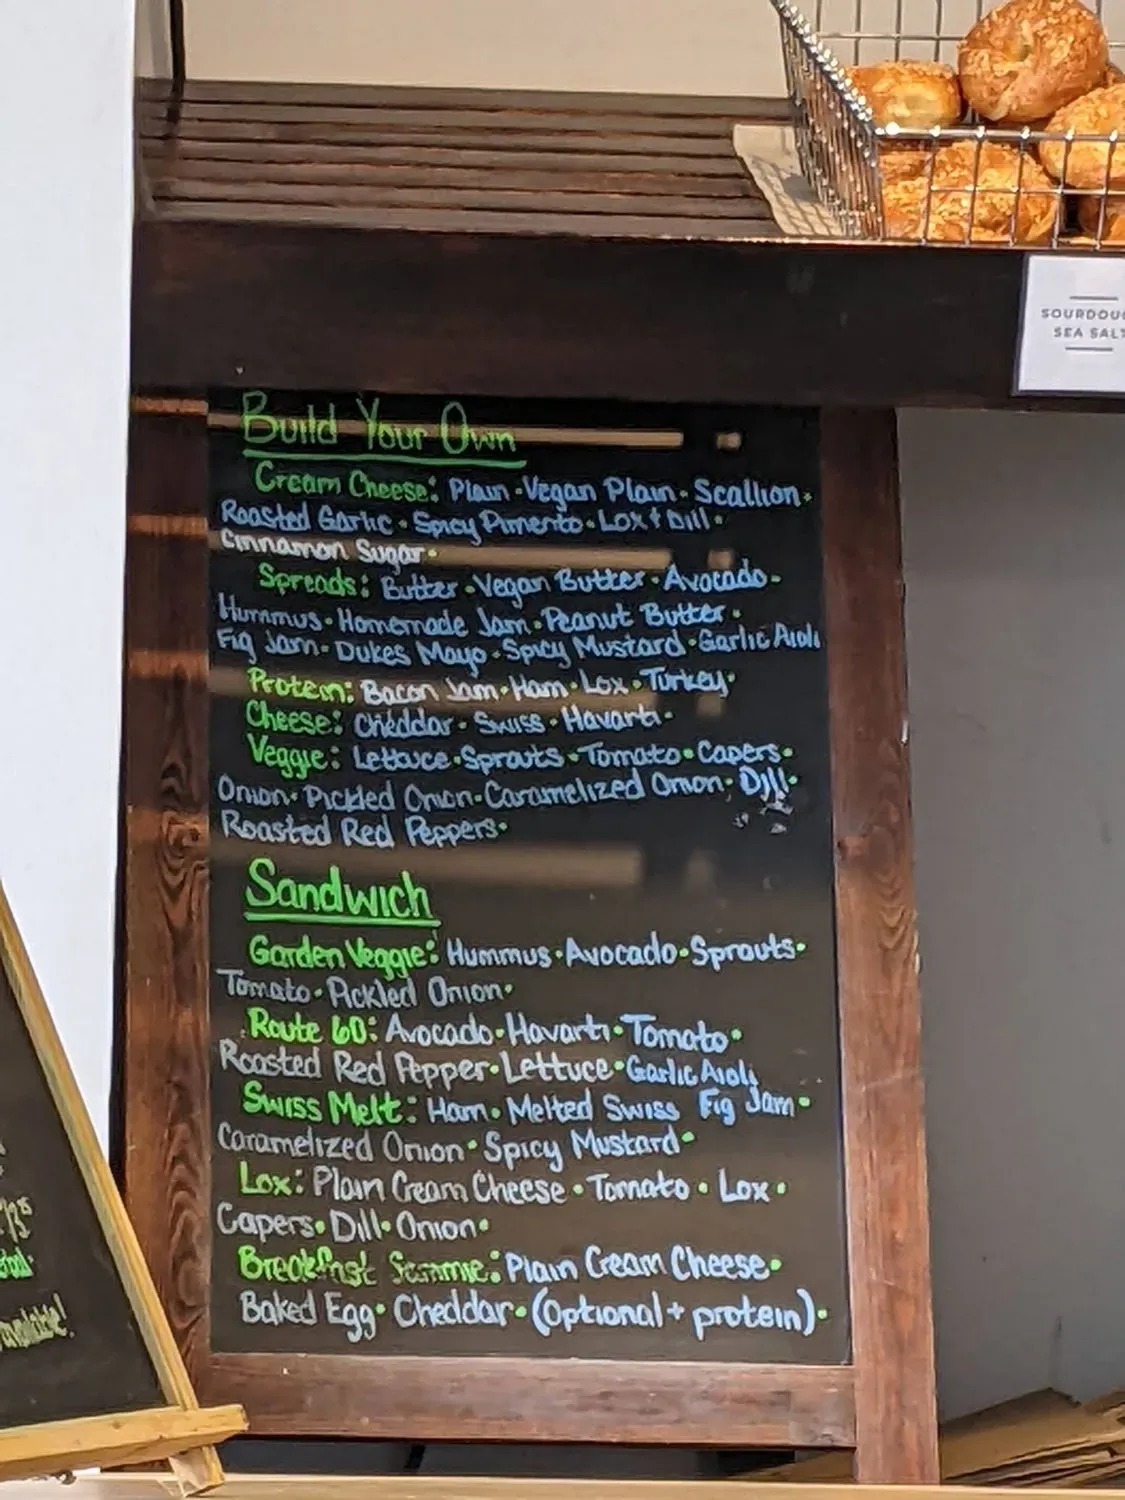 SOURDOU
SEA SALT
Build Your Own
Cream Cheese: Plain · Vegan Plain · Scallion ·
Roasted Garlic · Spicy Pimento · Lox + Dill ·
Cinnamon Sugar ·
Spreads: Butter · Vegan Butter · Avocado ·
Hummus · Homemade Jam · Peanut Butter ·
Fig Jam · Dukes Mayo · Spicy Mustard · Garlic Aioli
Protein: Bacon Jam · Ham · Lox · Turkey ·
Cheese: Cheddar · Swiss · Havarti ·
Veggie: Lettuce · Sprouts · Tomato · Capers ·
Onion · Pickled Onion · Caramelized Onion · Dill ·
Roasted Red Peppers ·
Sandwich
Garden Veggie: Hummus · Avocado · Sprouts ·
Tomato · Pickled Onion ·
Route 60: Avocado · Havarti · Tomato ·
Roasted Red Pepper · Lettuce · Garlic Aioli
Swiss Melt: Ham · Melted Swiss Fig Jam ·
Caramelized Onion · Spicy Mustard ·
Lox: Plain Cream Cheese · Tomato · Lox ·
Capers · Dill · Onion ·
Breakfast Sammie: Plain Cream Cheese ·
Baked Egg · Cheddar · (Optional + protein) ·